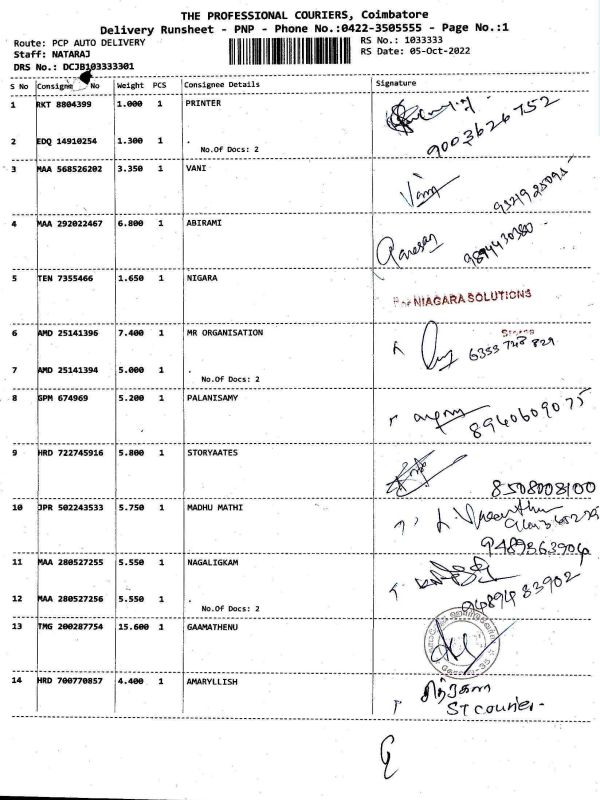 THE PROFESSIONAL COURIERS, Coimbatore
Delivery Runsheet - PNP - Phone No.:0422-3505555 - Page No.:1
Route: PCP AUTO DELIVERY
Staff: NATARAJ
DRS No.: DCJB103333301
RS No.: 1033333
RS Date: 05-Oct-2022
S No Consigne No Weight PCS Consignee Details Signature
1 RKT 8804399 1.000 1 PRINTER
9003626752
2 EDQ 14910254 1.300 1 .
No.Of Docs: 2
3 MAA 568526202 3.350 1 VANI
Vani
4 MAA 292022467 6.800 1 ABIRAMI
Ganesan 9894430380
5 TEN 7355466 1.650 1 NIGARA
For NIAGARA SOLUTIONS
6 AMD 25141396 7.400 1 MR ORGANISATION
6353 748 829
7 AMD 25141394 5.000 1 .
No.Of Docs: 2
8 GPM 674969 5.200 1 PALANISAMY
8940609075
9 HRD 722745916 5.800 1 STORYAATES
8508008100
10 JPR 502243533 5.750 1 MADHU MATHI
9489363904
11 MAA 280527255 5.550 1 NAGALIGKAM
12 MAA 280527256 5.550 1 .
No.Of Docs: 2
9489483902
13 TMG 200287754 15.600 1 GAAMATHENU
14 HRD 700770857 4.400 1 AMARYLLISH
சித்ரகலா
ST courier-